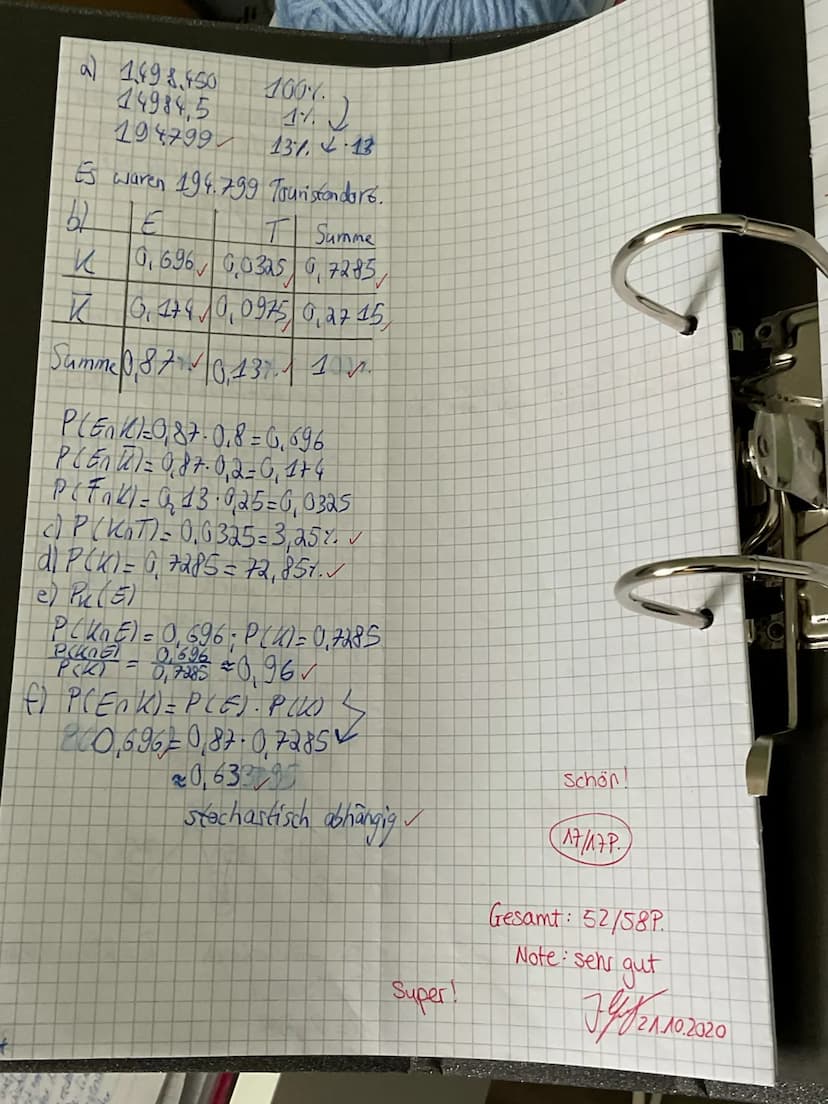 a) 1.498.450 100%
14984,5 1%
194799 13% · 13
Es waren 194.799 Touristendors.
b) E T Summe
K 0,696 0,0325 0,7285
K̅ 0,174 0,0975 0,2715
Summe 0,87 0,13 1
P(E∩K)=0,87·0,8=0,696
P(E∩K̅)=0,87·0,2=0,174
P(T∩K)=0,13·0,25=0,0325
c) P(K∩T)=0,0325=3,25%
d) P(K)=0,7285=72,85%
e) P_K(E)
P(K∩E)=0,696; P(K)=0,7285
P(K∩E)/P(K) = 0,696/0,7285 ≈ 0,96
f) P(E∩K)=P(E)·P(K)
0,696=0,87·0,7285
≈0,633
stochastisch abhängig
schön!
17/17P.
Gesamt: 52/58P.
Note: sehr gut
Super!
21.10.2020